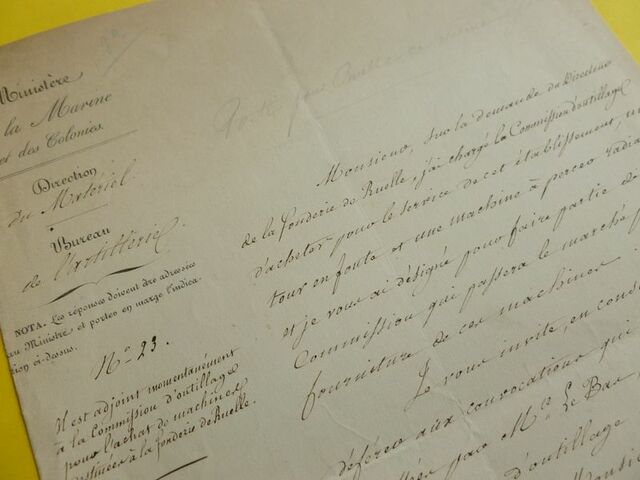 Ministère
de la Marine
et des Colonies.
Direction
du Matériel.
Bureau
de l'artillerie.
NOTA. Les réponses doivent être adressées
au Ministre et porter en marge l'indica-
tion ci-dessus.
No. 23.
Il est adjoint momentanément
à la Commission d'outillage
pour l'achat de machines
destinées à la fonderie de Ruelle.
Monsieur, sur la demande du Directeur
de la fonderie de Ruelle, j'ai chargé la Commission d'outillage
d'acheter pour le service de cet établissement, un
tour en fonte et une machine à percer radia
et je vous ai désigné pour faire partie de
Commission qui passera le marché p
fourniture de ces machines.
Je vous invite, en cons
déférer aux convocations qui
par Mr. Le Bas,
d'outillage
Monsie